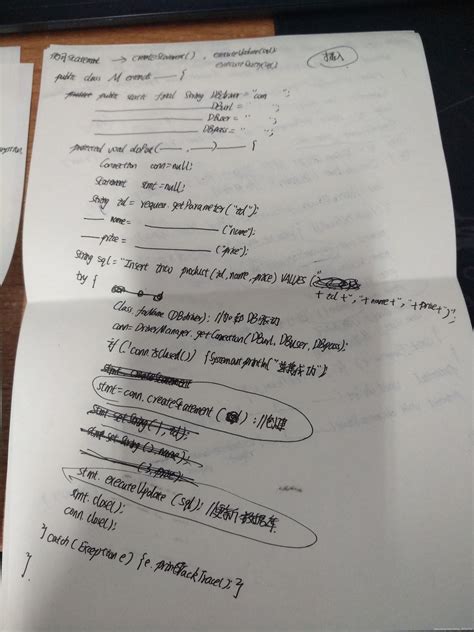 Statement → createStatement(), executeUpdate(sql)
executeQuery(sql)
插入
public class M extends — {
public static final String DBdriver = "com ";
DBurl = " ";
DBuser = " ";
DBpass = " ";
protected void doPost(—, —) {
Connection conn=null;
Statement stmt=null;
String id = request.getParameter("id");
— name= — ("name");
— price= — ("price");
String sql="Insert into product(id,name,price) VALUES ("
+ id +","+name+","+price+")";
try {
Class.forName(DBdriver); //加载DB驱动
conn=DriverManager.getConnection(DBurl, DBuser, DBpass);
if(!conn.isClosed()) {System.out.println("连接成功")
stmt=createStatement
stmt=conn.createStatement( ); //创建
stmt.setString(1, id);
stmt.setString(2, name);
(3, price);
stmt.executeUpdate(sql); //更新数据库
stmt.close();
conn.close();
} catch(Exception e) {e.printStackTrace(); }
}